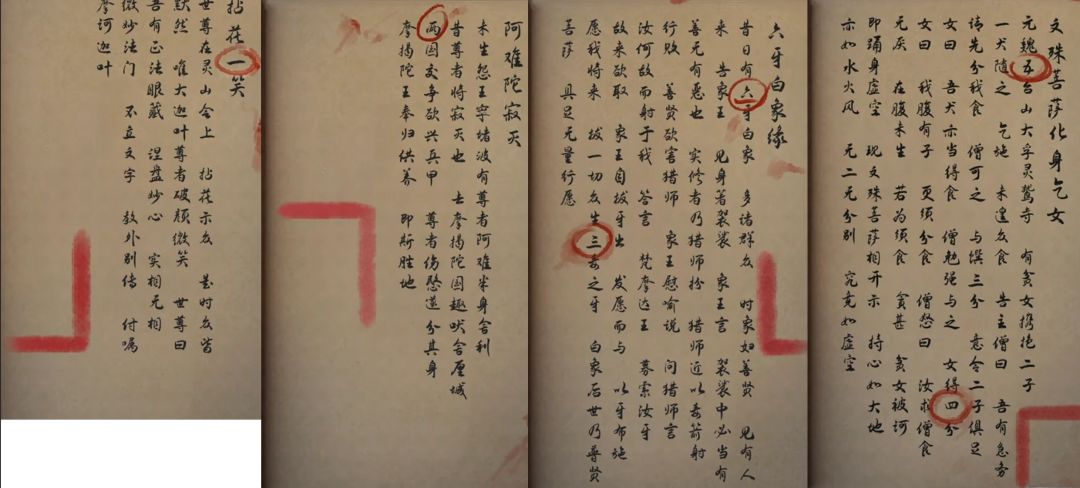 拈花一笑
世尊在灵山会上 拈花示众 是时众皆
默然 唯大迦叶尊者破颜微笑 世尊曰
吾有正法眼藏 涅盘妙心 实相无相
微妙法门 不立文字 教外别传 付嘱
摩诃迦叶
阿难陀寂灭
未生怨王窣堵波有尊者阿难半身舍利
昔尊者将寂灭也 去摩揭陀国趣吠舍厘城
两国交争欲兴兵甲 尊者伤愍遂分其身
摩揭陀王奉归供养 即斯胜地
六牙白象缘
昔日有六牙白象 多诸群众 时象妇善贤 见有人
来 告象王 见身著袈裟 象王言 袈裟中必当有
善无有恶也 实修者乃猎师扮 猎师近以毒箭射
行败 善贤欲害猎师 象王慰喻说 问猎师言
汝何故而射于我 答言 梵摩达王 募索汝牙
故来欲取 象王自拔牙出 发愿而与 以牙布施
愿我将来 拔一切众生三毒之牙 白象后世乃普贤
菩萨 具足无量行愿
文殊菩萨化身乞女
元魏五台山大孚灵鹫寺 有贫女携抱二子
一犬随之 乞施 未遑众食 告主僧曰 吾有急务
请先分我食 僧可之 与馔三分 意令二子俱足
女曰 吾犬亦当得食 僧勉强与之 女得四分
女曰 我腹有子 更须分食 僧愁曰 汝求僧食
无厌 在腹未生 若为须食 贪甚 贫女被诃
即踊身虚空 现文殊菩萨相开示 持心如大地
亦如水火风 无二无分别 究竟如虚空